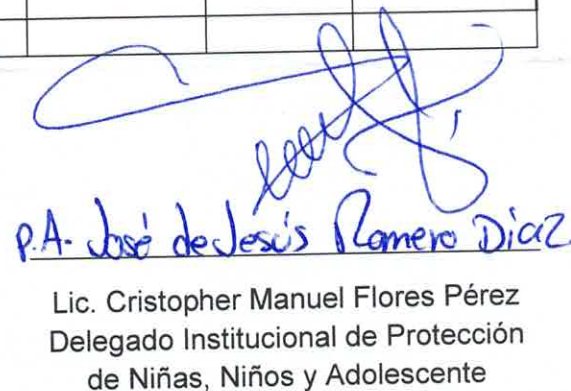 P.A. José de Jesús Romero Díaz.
Lic. Cristopher Manuel Flores Pérez
Delegado Institucional de Protección
de Niñas, Niños y Adolescente